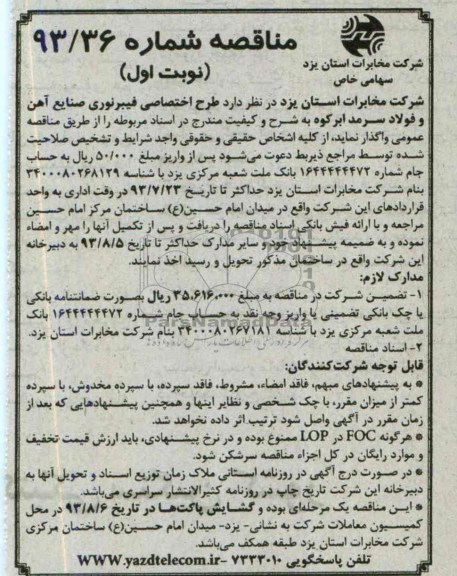 مناقصه شماره ۹۳/۳۶
(نوبت اول)
شرکت مخابرات استان یزد
سهامی خاص
شرکت مخابرات استان یزد در نظر دارد طرح اختصاصی فیبرنوری صنایع آهن
و فولاد سرمد ابرکوه به شرح و کیفیت مندرج در اسناد مربوطه را از طریق مناقصه
عمومی واگذار نماید، از کلیه اشخاص حقیقی و حقوقی واجد شرایط و تشخیص صلاحیت
شده توسط مراجع ذیربط دعوت می‌شود پس از واریز مبلغ ۵۰/۰۰۰ ریال به حساب
جام شماره ۱۶۴۴۴۴۴۴۷۲ بانک ملت شعبه مرکزی یزد با شناسه ۳۴۰۰۰۸۰۲۶۸۱۲۹
بنام شرکت مخابرات استان یزد حداکثر تا تاریخ ۹۳/۷/۲۳ در وقت اداری به واحد
قراردادهای این شرکت واقع در میدان امام حسین(ع) ساختمان مرکز امام حسین
مراجعه و با ارائه فیش بانکی اسناد مناقصه را دریافت و پس از تکمیل آنها را مهر و امضاء
نموده و به ضمیمه پیشنهاد خود و سایر مدارک حداکثر تا تاریخ ۹۳/۸/۵ به دبیرخانه
این شرکت واقع در ساختمان مذکور تحویل و رسید اخذ نمایند.
مدارک لازم:
۱- تضمین شرکت در مناقصه به مبلغ ۳۵،۶۱۶،۰۰۰ ریال بصورت ضمانتنامه بانکی
یا چک بانکی تضمینی یا واریز وجه نقد به حساب جام شماره ۱۶۴۴۴۴۴۴۷۲ بانک
ملت شعبه مرکزی یزد با شناسه ۲۴۰۰۰۸۰۲۶۷۱۸۱ بنام شرکت مخابرات استان یزد.
۲- اسناد مناقصه
قابل توجه شرکت‌کنندگان:
● به پیشنهادهای مبهم، فاقد امضاء، مشروط، فاقد سپرده، با سپرده مخدوش، با سپرده
کمتر از میزان مقرر، با چک شخصی و نظایر اینها و همچنین پیشنهادهایی که بعد از
زمان مقرر در آگهی واصل شود ترتیب اثر داده نخواهد شد.
● هرگونه FOC در LOP ممنوع بوده و در نرخ پیشنهادی، باید ارزش قیمت تخفیف
و موارد رایگان در کل اجزاء مناقصه سرشکن شود.
● در صورت درج آگهی در روزنامه استانی ملاک زمان توزیع اسناد و تحویل آنها به
دبیرخانه این شرکت تاریخ چاپ در روزنامه کثیرالانتشار سراسری می‌باشد.
● این مناقصه یک مرحله‌ای بوده و گشایش پاکت‌ها در تاریخ ۹۳/۸/۶ در محل
کمیسیون معاملات شرکت به نشانی- یزد- میدان امام حسین(ع) ساختمان مرکزی
شرکت مخابرات استان یزد طبقه همکف می‌باشد.
تلفن پاسخگویی ۷۲۳۳۰۱۰ -WWW.yazdtelecom.ir